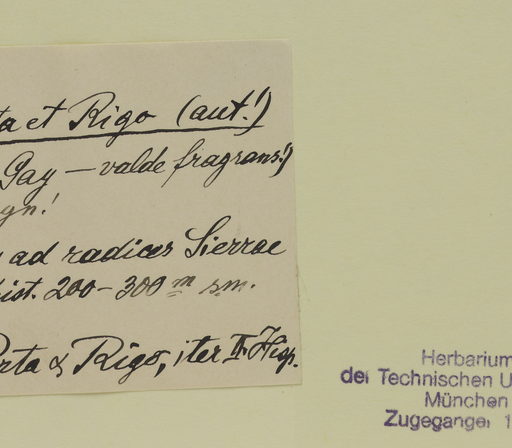 ta et Rigo (aut.!)
Gay — valde fragrans!)
gn.!
ad radices Sierrae
ist. 200-300 m sm.
rta & Rigo, iter II. Hisp.
Herbarium
der Technischen U
München
Zugegangen 1